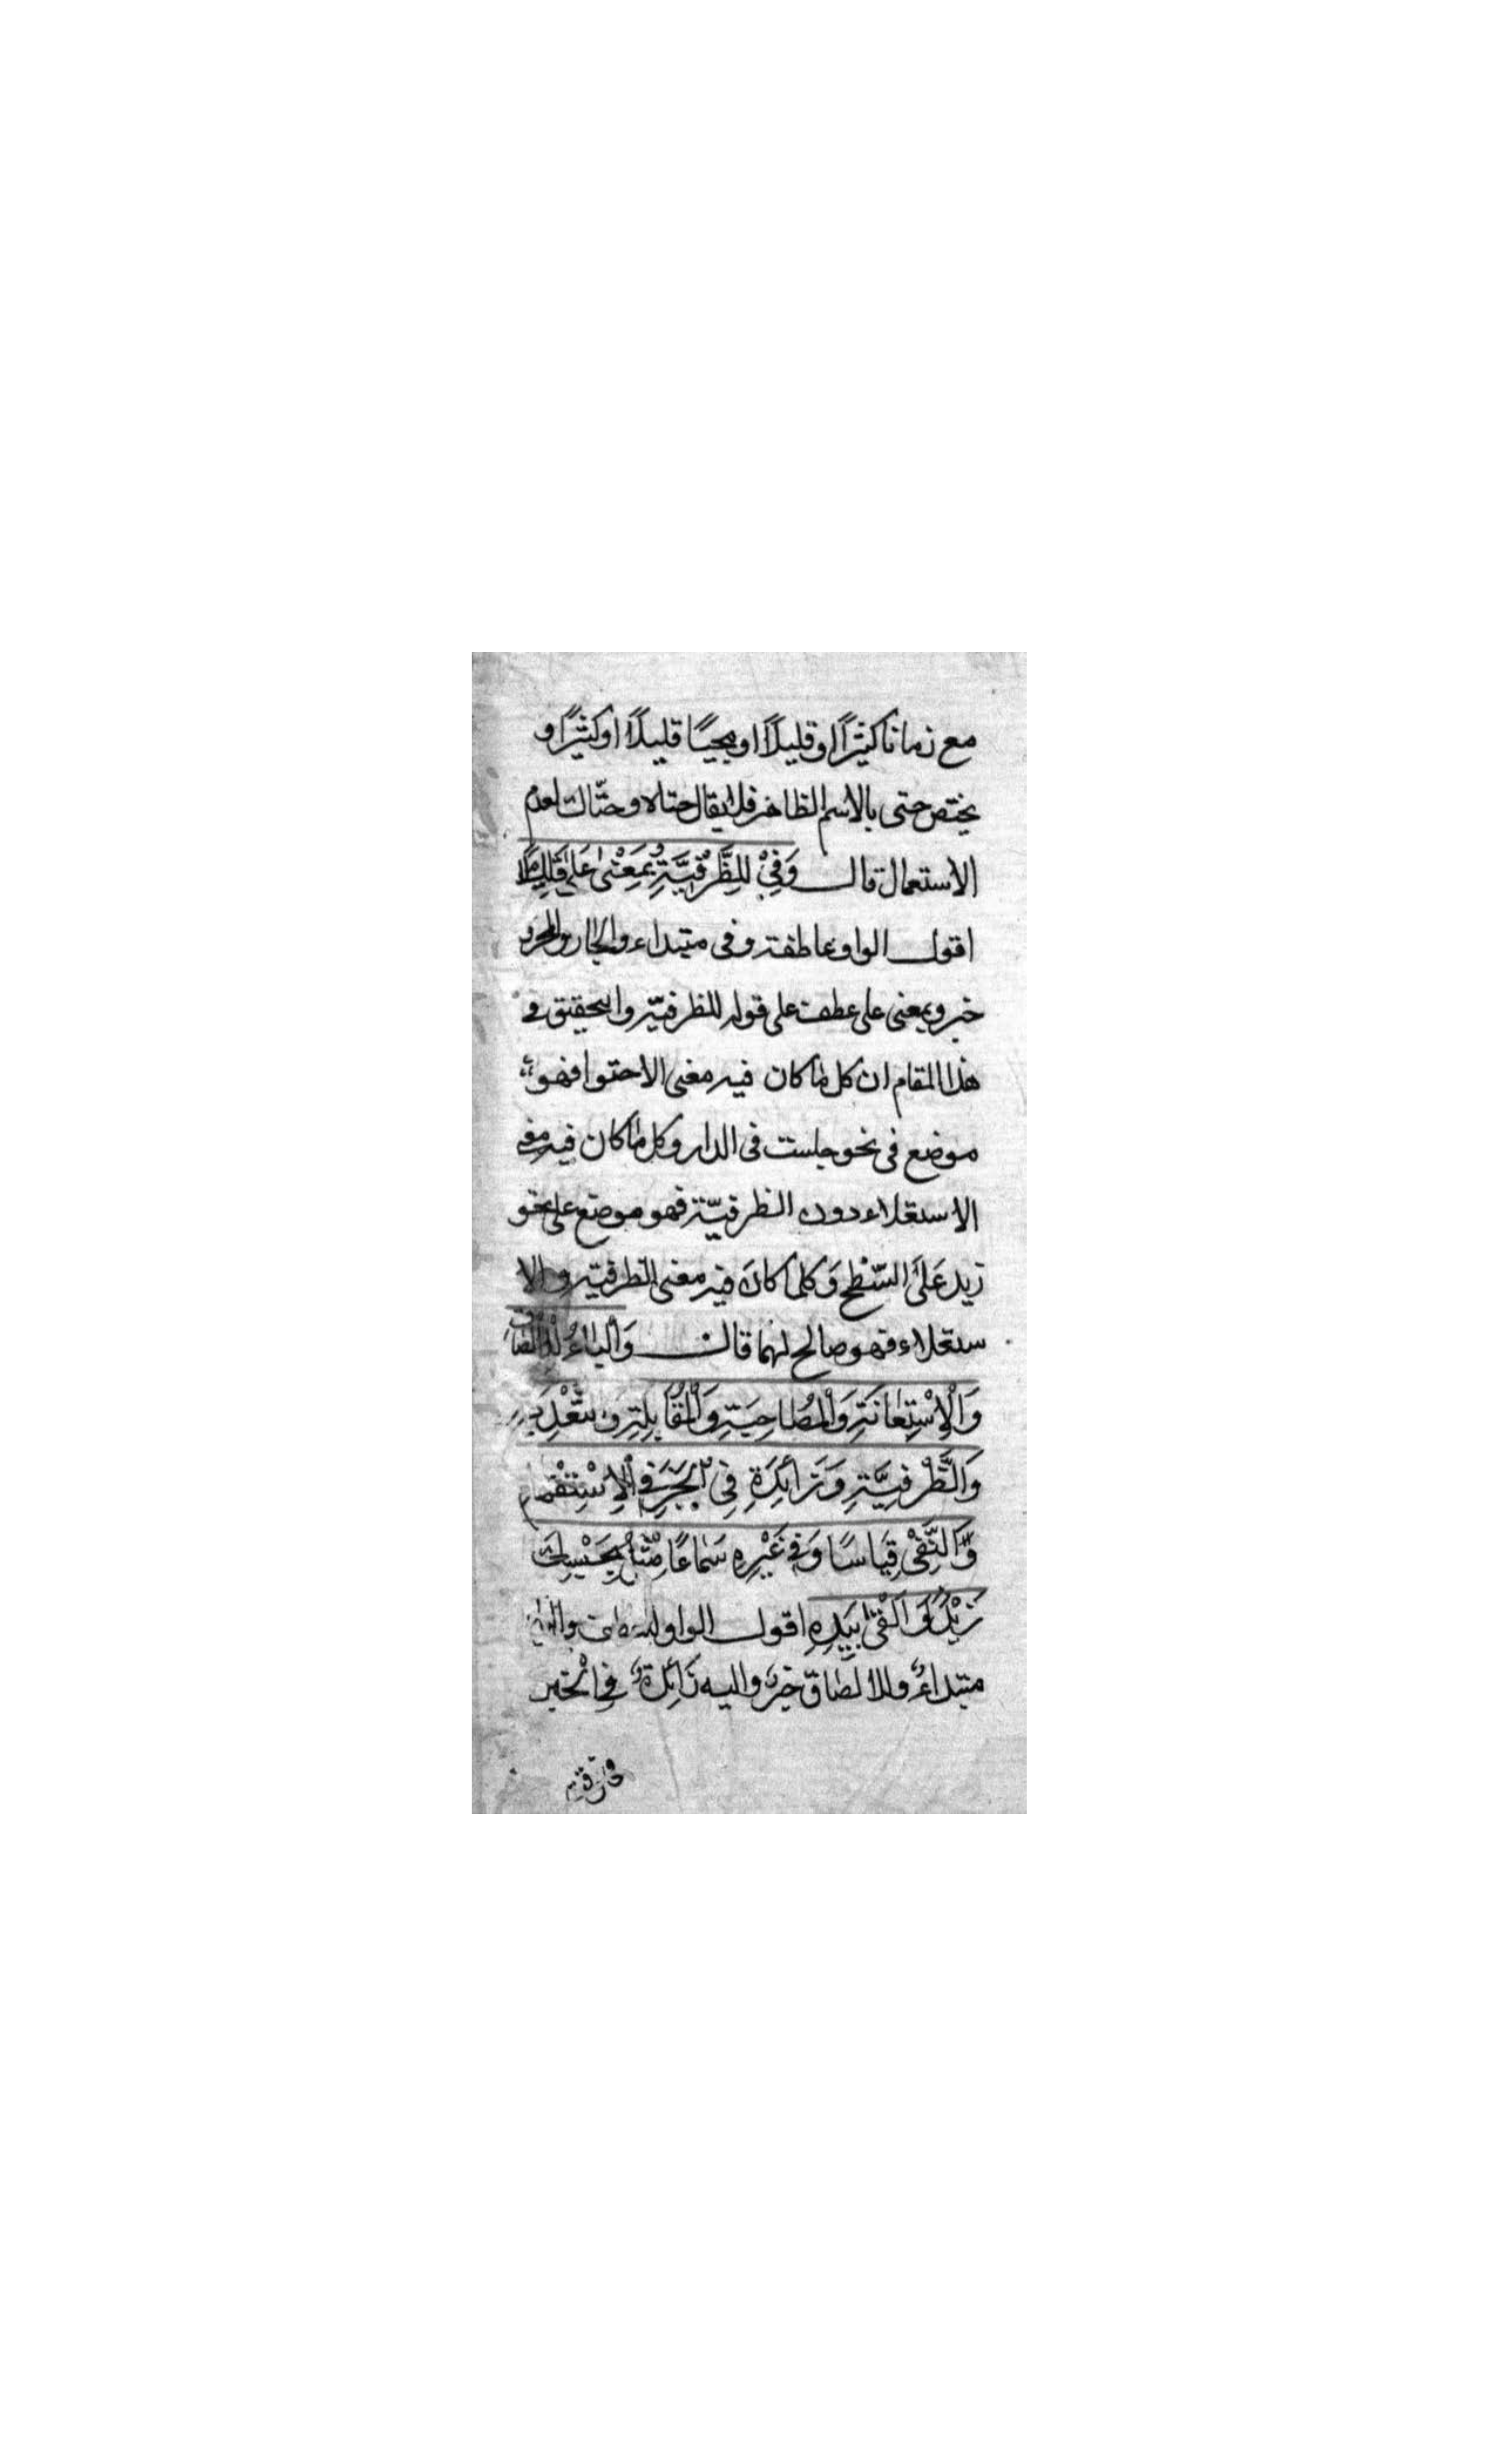 مع زمانا كثيرًا او قليلًا او مجيئًا قليلًا او كثيرًا و
يختص حتى بالاسم الظاهر فلا يقال حتاه وحتّاك لعدم
الاستعمال قال وَفِيْ لِلظَّرْفِيَّةِ وَبِمَعْنىٰ عَلىٰ قَلِيلًا
اقول الواو عاطفة وفى مبتداء والجار والمجرور
خبر وبمعنى على عطف على قوله للظرفيّة والتحقيق فى
هذا المقام ان كل ما كان فيه معنى الاحتوا فهو
موضع فى نحو جلست فى الدار وكل ما كان فيه معنى
الاستعلاء دون الظرفيّة فهو موضع على نحو
زيد عَلَى السّطْحِ وَكلما كان فيه معنى الظرفية والا
ستعلاء فهو صالح لهما قال وَالْبَاءُ لِلْاِلْصَاقِ
وَالْاِسْتِعَانَةِ وَالْمُصَاحِبَةِ وَالْمُقَابِلَةِ وَالتَّعْدِيَةِ
وَالظَّرْفِيَّةِ وَزَائِدَةٍ فِى الْخَبَرِ فِى الْاِسْتِفْهَامِ
وَّالنَّفْىِ قِيَاسًا وَفِى غَيْرِهٖ سَمَاعًا مِثْلُ بِحَسْبِكَ
زَيْدٌ وَاَلْقىٰ بِيَدِهٖ اقول الواو والباء
مبتداءٌ وللالصاق خبرٌ زَائِدَةٌ فى الخبر